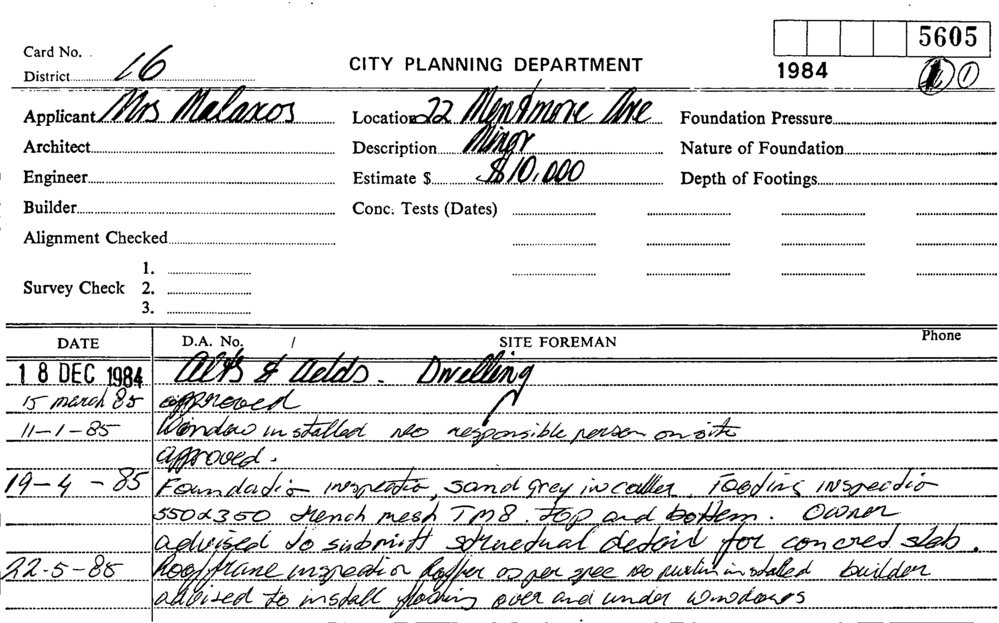 5605
Card No.
District 16
CITY PLANNING DEPARTMENT
1984 1
Applicant Mrs Malaxos Location 22 Mentmore Ave Foundation Pressure
Architect Description Minor Nature of Foundation
Engineer Estimate $ $10,000 Depth of Footings
Builder Conc. Tests (Dates)
Alignment Checked
1.
Survey Check 2.
3.
DATE D.A. No. / SITE FOREMAN Phone
18 DEC 1984 Alts & Adds. Dwelling
15 march 85 approved
11-1-85 Window installed no responsible person on site
approved.
19-4-85 Foundatio inspectio, sand grey in coller. Footing inspectio
550x350 trench mesh TM8. top and bottem. Owner
advised to submitt structual detail for concret slab.
22-5-85 Roof frame inspection Rafter as per spec no purlin installed builder
advised to install flashing over and under windows